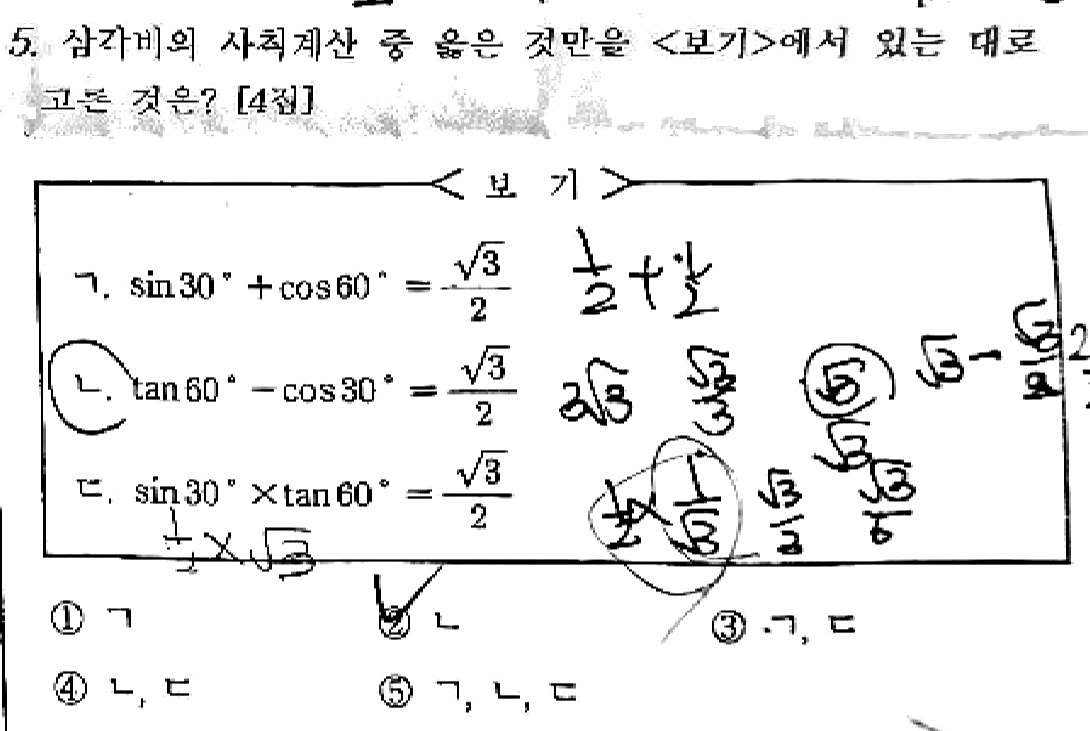 5. 삼각비의 사칙계산 중 옳은 것만을 <보기>에서 있는 대로
고른 것은? [4점]
< 보 기 >
ㄱ. sin30° + cos60° = √3/2 1/2 + 1/2
ㄴ. tan60° − cos30° = √3/2 2√3 √3/3 √3 √3 − √3/2
√3
ㄷ. sin30° × tan60° = √3/2 1/2 × 1/√3 √3/2 √3/6
1/2 × √3
① ㄱ ② ㄴ ③ ㄱ, ㄷ
④ ㄴ, ㄷ ⑤ ㄱ, ㄴ, ㄷ